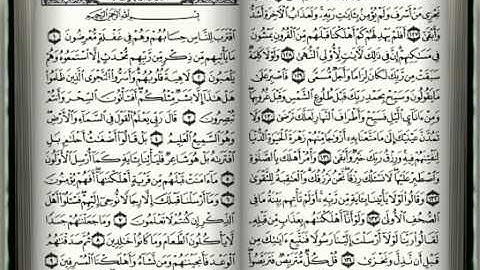 نَجْزِي مَنْ أَسْرَفَ وَلَمْ يُؤْمِنۢ بِـَٔايَٰتِ رَبِّهِۦ وَلَعَذَابُ ٱلْءَاخِرَةِ أَشَدُّ
وَأَبْقَىٰٓ ١٢٧ أَفَلَمْ يَهْدِ لَهُمْ كَمْ أَهْلَكْنَا قَبْلَهُم مِّنَ ٱلْقُرُونِ يَمْشُونَ
فِي مَسَٰكِنِهِمْ إِنَّ فِي ذَٰلِكَ لَءَايَٰتٍ لِّأُو۟لِي ٱلنُّهَىٰ ١٢٨ وَلَوْلَا كَلِمَةٌ
سَبَقَتْ مِن رَّبِّكَ لَكَانَ لِزَامًا وَأَجَلٌ مُّسَمًّى ١٢٩ فَٱصْبِرْ عَلَىٰ
مَا يَقُولُونَ وَسَبِّحْ بِحَمْدِ رَبِّكَ قَبْلَ طُلُوعِ ٱلشَّمْسِ وَقَبْلَ غُرُوبِهَا
وَمِنْ ءَانَآئِ ٱلَّيْلِ فَسَبِّحْ وَأَطْرَافَ ٱلنَّهَارِ لَعَلَّكَ تَرْضَىٰ ١٣٠ وَلَا
تَمُدَّنَّ عَيْنَيْكَ إِلَىٰ مَا مَتَّعْنَا بِهِۦٓ أَزْوَٰجًا مِّنْهُمْ زَهْرَةَ ٱلْحَيَوٰةِ ٱلدُّنْيَا
لِنَفْتِنَهُمْ فِيهِ وَرِزْقُ رَبِّكَ خَيْرٌ وَأَبْقَىٰ ١٣١ وَأْمُرْ أَهْلَكَ بِٱلصَّلَوٰةِ
وَٱصْطَبِرْ عَلَيْهَا لَا نَسْـَٔلُكَ رِزْقًا نَّحْنُ نَرْزُقُكَ وَٱلْعَٰقِبَةُ لِلتَّقْوَىٰ
١٣٢ وَقَالُوا۟ لَوْلَا يَأْتِينَا بِـَٔايَةٍ مِّن رَّبِّهِۦٓ أَوَلَمْ تَأْتِهِم بَيِّنَةُ مَا فِي
ٱلصُّحُفِ ٱلْأُولَىٰ ١٣٣ وَلَوْ أَنَّآ أَهْلَكْنَٰهُم بِعَذَابٍ مِّن قَبْلِهِۦ
لَقَالُوا۟ رَبَّنَا لَوْلَآ أَرْسَلْتَ إِلَيْنَا رَسُولًا فَنَتَّبِعَ ءَايَٰتِكَ مِن
قَبْلِ أَن نَّذِلَّ وَنَخْزَىٰ ١٣٤ قُلْ كُلٌّ مُّتَرَبِّصٌ فَتَرَبَّصُوا۟
بِسْمِ ٱللَّهِ ٱلرَّحْمَٰنِ ٱلرَّحِيمِ
ٱقْتَرَبَ لِلنَّاسِ حِسَابُهُمْ وَهُمْ فِي غَفْلَةٍ مُّعْرِضُونَ ١
مَا يَأْتِيهِم مِّن ذِكْرٍ مِّن رَّبِّهِم مُّحْدَثٍ إِلَّا ٱسْتَمَعُوهُ وَهُمْ
يَلْعَبُونَ ٢ لَاهِيَةً قُلُوبُهُمْ وَأَسَرُّوا۟ ٱلنَّجْوَى ٱلَّذِينَ ظَلَمُوا۟
هَلْ هَٰذَآ إِلَّا بَشَرٌ مِّثْلُكُمْ أَفَتَأْتُونَ ٱلسِّحْرَ وَأَنتُمْ
تُبْصِرُونَ ٣ قَالَ رَبِّي يَعْلَمُ ٱلْقَوْلَ فِي ٱلسَّمَآءِ وَٱلْأَرْضِ
وَهُوَ ٱلسَّمِيعُ ٱلْعَلِيمُ ٤ بَلْ قَالُوٓا۟ أَضْغَٰثُ أَحْلَٰمٍۭ بَلِ
ٱفْتَرَىٰهُ بَلْ هُوَ شَاعِرٌ فَلْيَأْتِنَا بِـَٔايَةٍ كَمَآ أُرْسِلَ ٱلْأَوَّلُونَ
٥ مَآ ءَامَنَتْ قَبْلَهُم مِّن قَرْيَةٍ أَهْلَكْنَٰهَآ أَفَهُمْ يُؤْمِنُونَ
٦ وَمَآ أَرْسَلْنَا قَبْلَكَ إِلَّا رِجَالًا نُّوحِيٓ إِلَيْهِمْ فَسْـَٔلُوٓا۟ أَهْلَ
ٱلذِّكْرِ إِن كُنتُمْ لَا تَعْلَمُونَ ٧ وَمَا جَعَلْنَٰهُمْ جَسَدًا
لَّا يَأْكُلُونَ ٱلطَّعَامَ وَمَا كَانُوا۟ خَٰلِدِينَ ٨ ثُمَّ صَدَقْنَٰهُمُ
ٱلْوَعْدَ فَأَنجَيْنَٰهُمْ وَمَن نَّشَآءُ وَأَهْلَكْنَا ٱلْمُسْرِفِينَ ٩